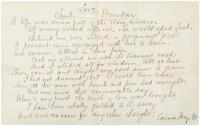 Love
Paul Dunbar
A life was mine full of the close concern
Of many-voiced affairs. The world sped fast;
Behind me, ever rolled a pregnant past.
A present came equipped with lore to learn.
Art, science, letters, in their turn,
Each one allured me with its treasures vast;
And I staked all for wisdom, till at last
Thou cam'st and taught my soul anew to yearn.
I had not dreamed that I could turn away
From all that men with brush and pen had wrought;
But ever since that memorable day
When to my heart the truth of love was brought,
I have been wholly yielded to its sway,
And had no room for any other thought.